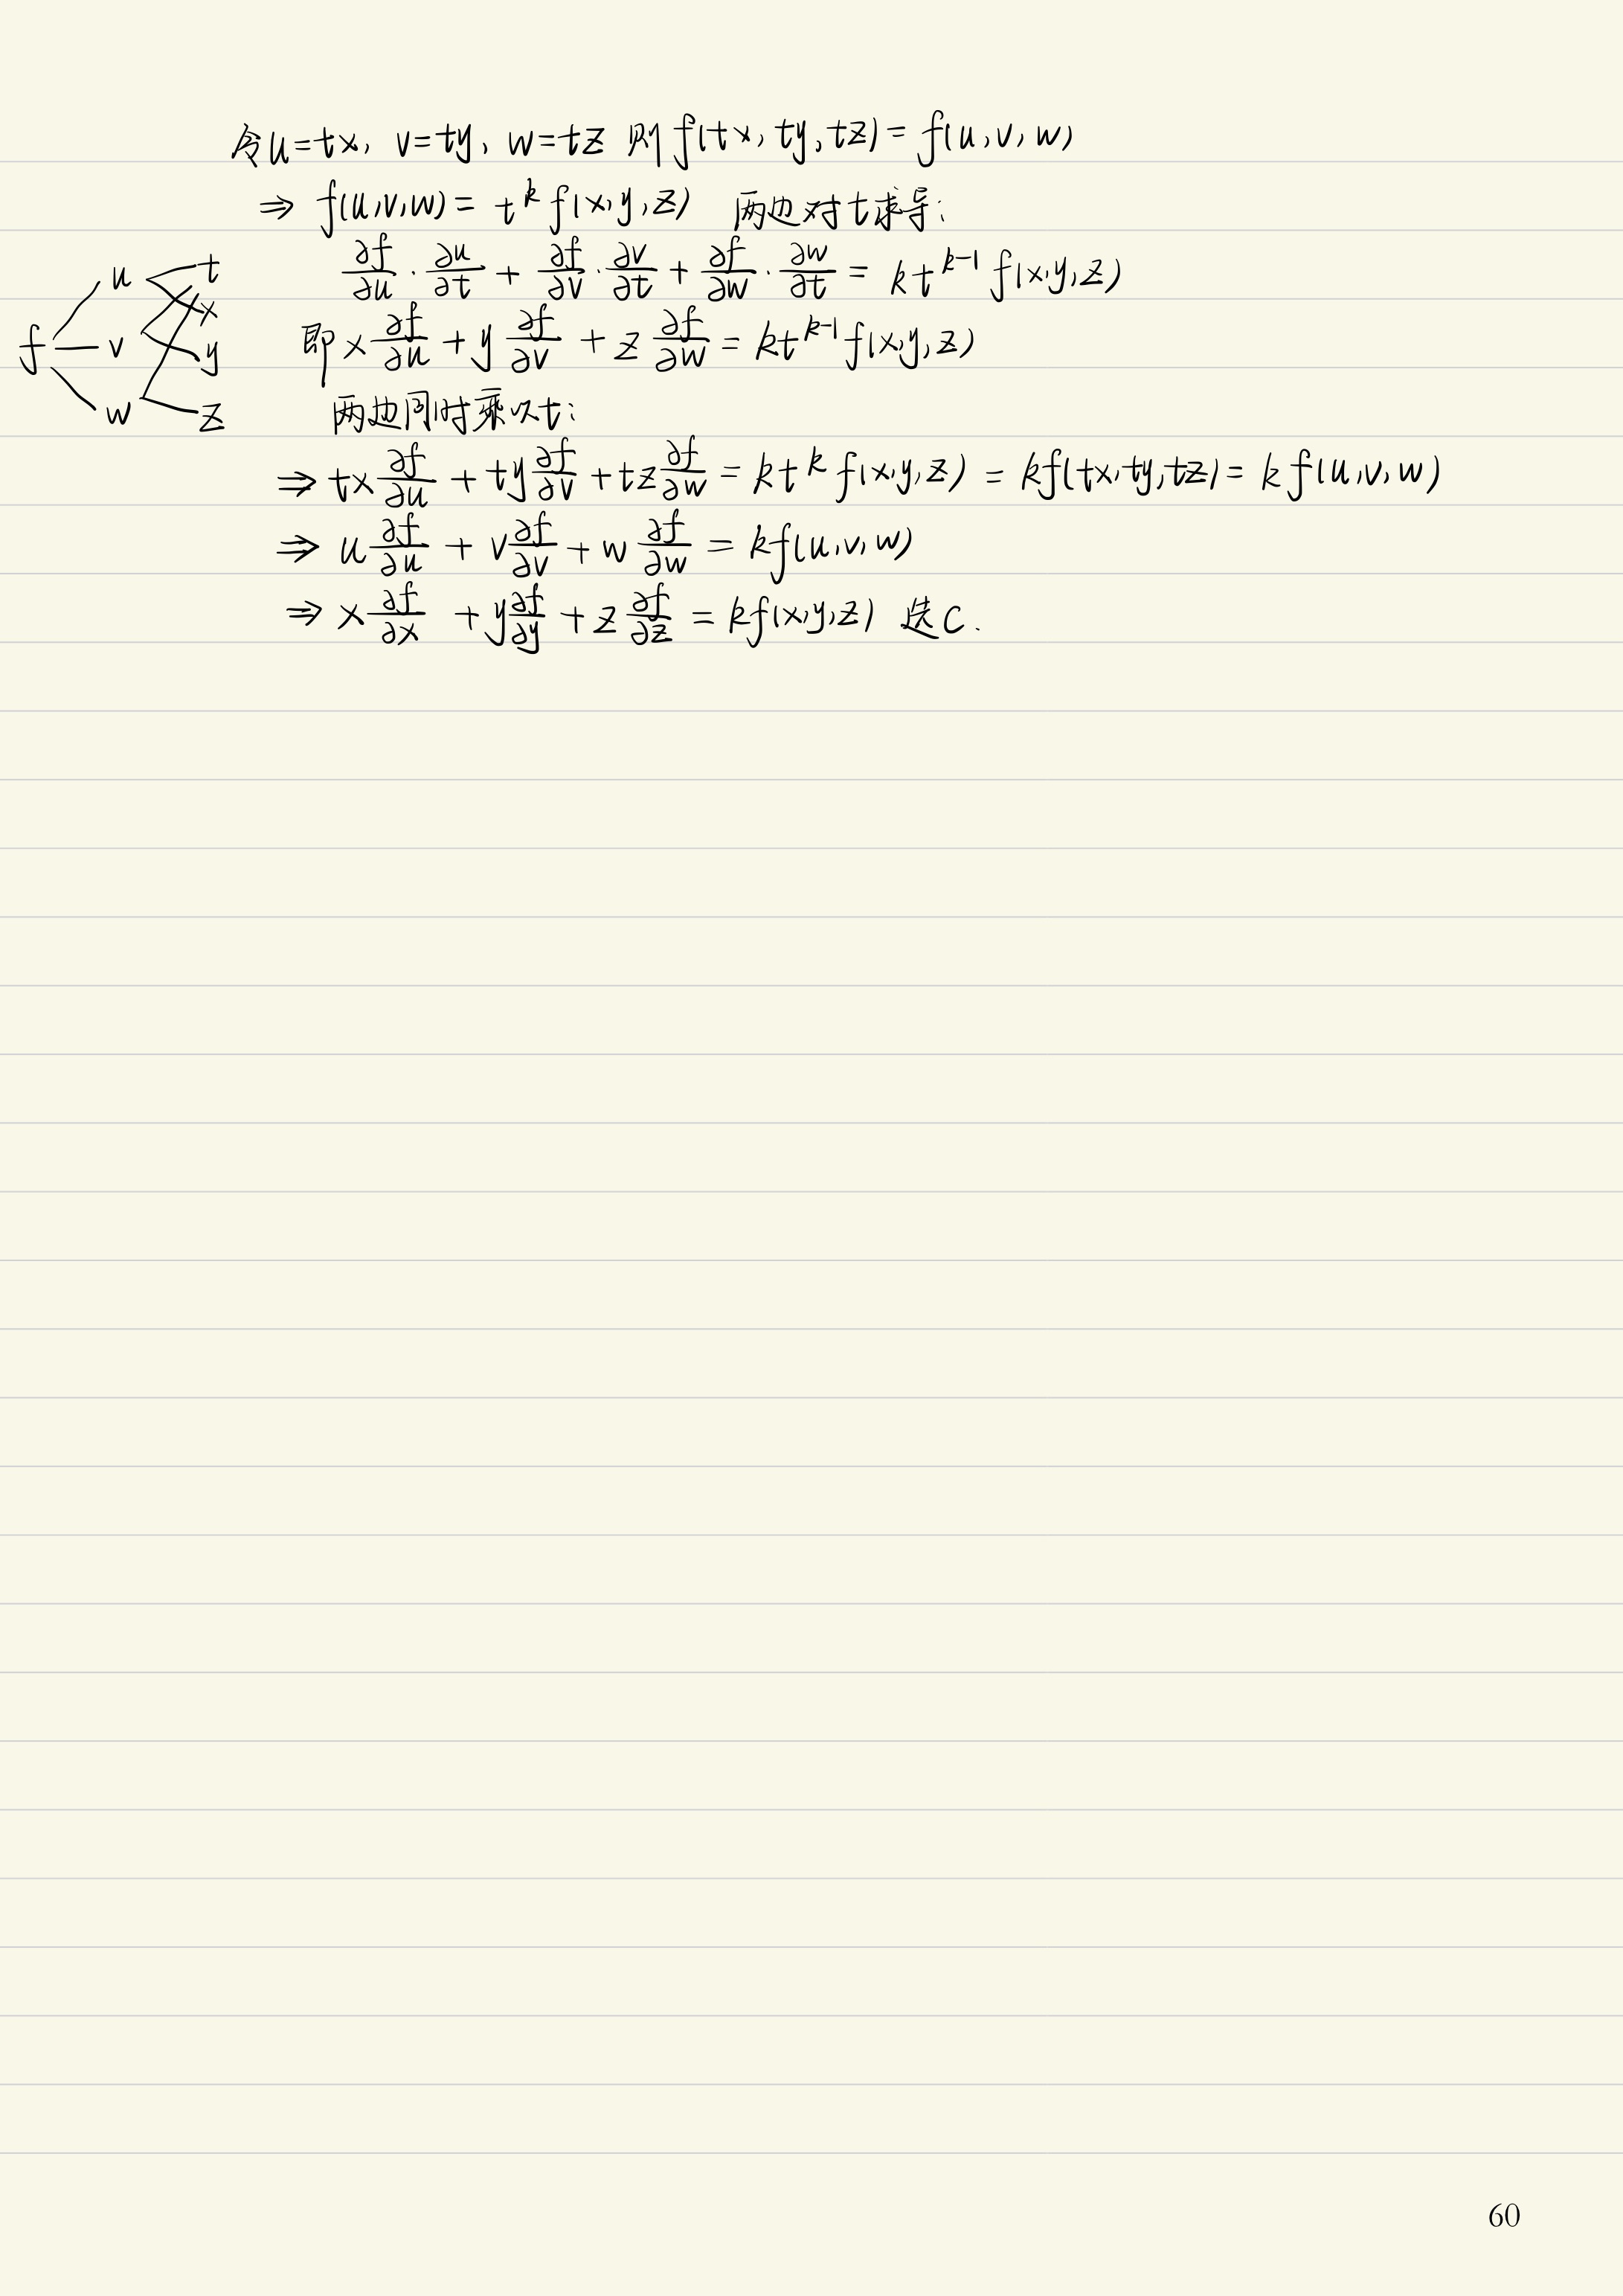 令u=tx, v=ty, w=tz 则 f(tx, ty, tz) = f(u, v, w)
⇒ f(u,v,w) = t^k f(x,y,z) 两边对t求导:
∂f/∂u · ∂u/∂t + ∂f/∂v · ∂v/∂t + ∂f/∂w · ∂w/∂t = kt^{k-1} f(x,y,z)
f u v w t x y z
即 x ∂f/∂u + y ∂f/∂v + z ∂f/∂w = kt^{k-1} f(x,y,z)
两边同时乘以t:
⇒ tx ∂f/∂u + ty ∂f/∂v + tz ∂f/∂w = kt^k f(x,y,z) = kf(tx,ty,tz) = k f(u,v,w)
⇒ u ∂f/∂u + v ∂f/∂v + w ∂f/∂w = kf(u,v,w)
⇒ x ∂f/∂x + y ∂f/∂y + z ∂f/∂z = kf(x,y,z) 选C.
60